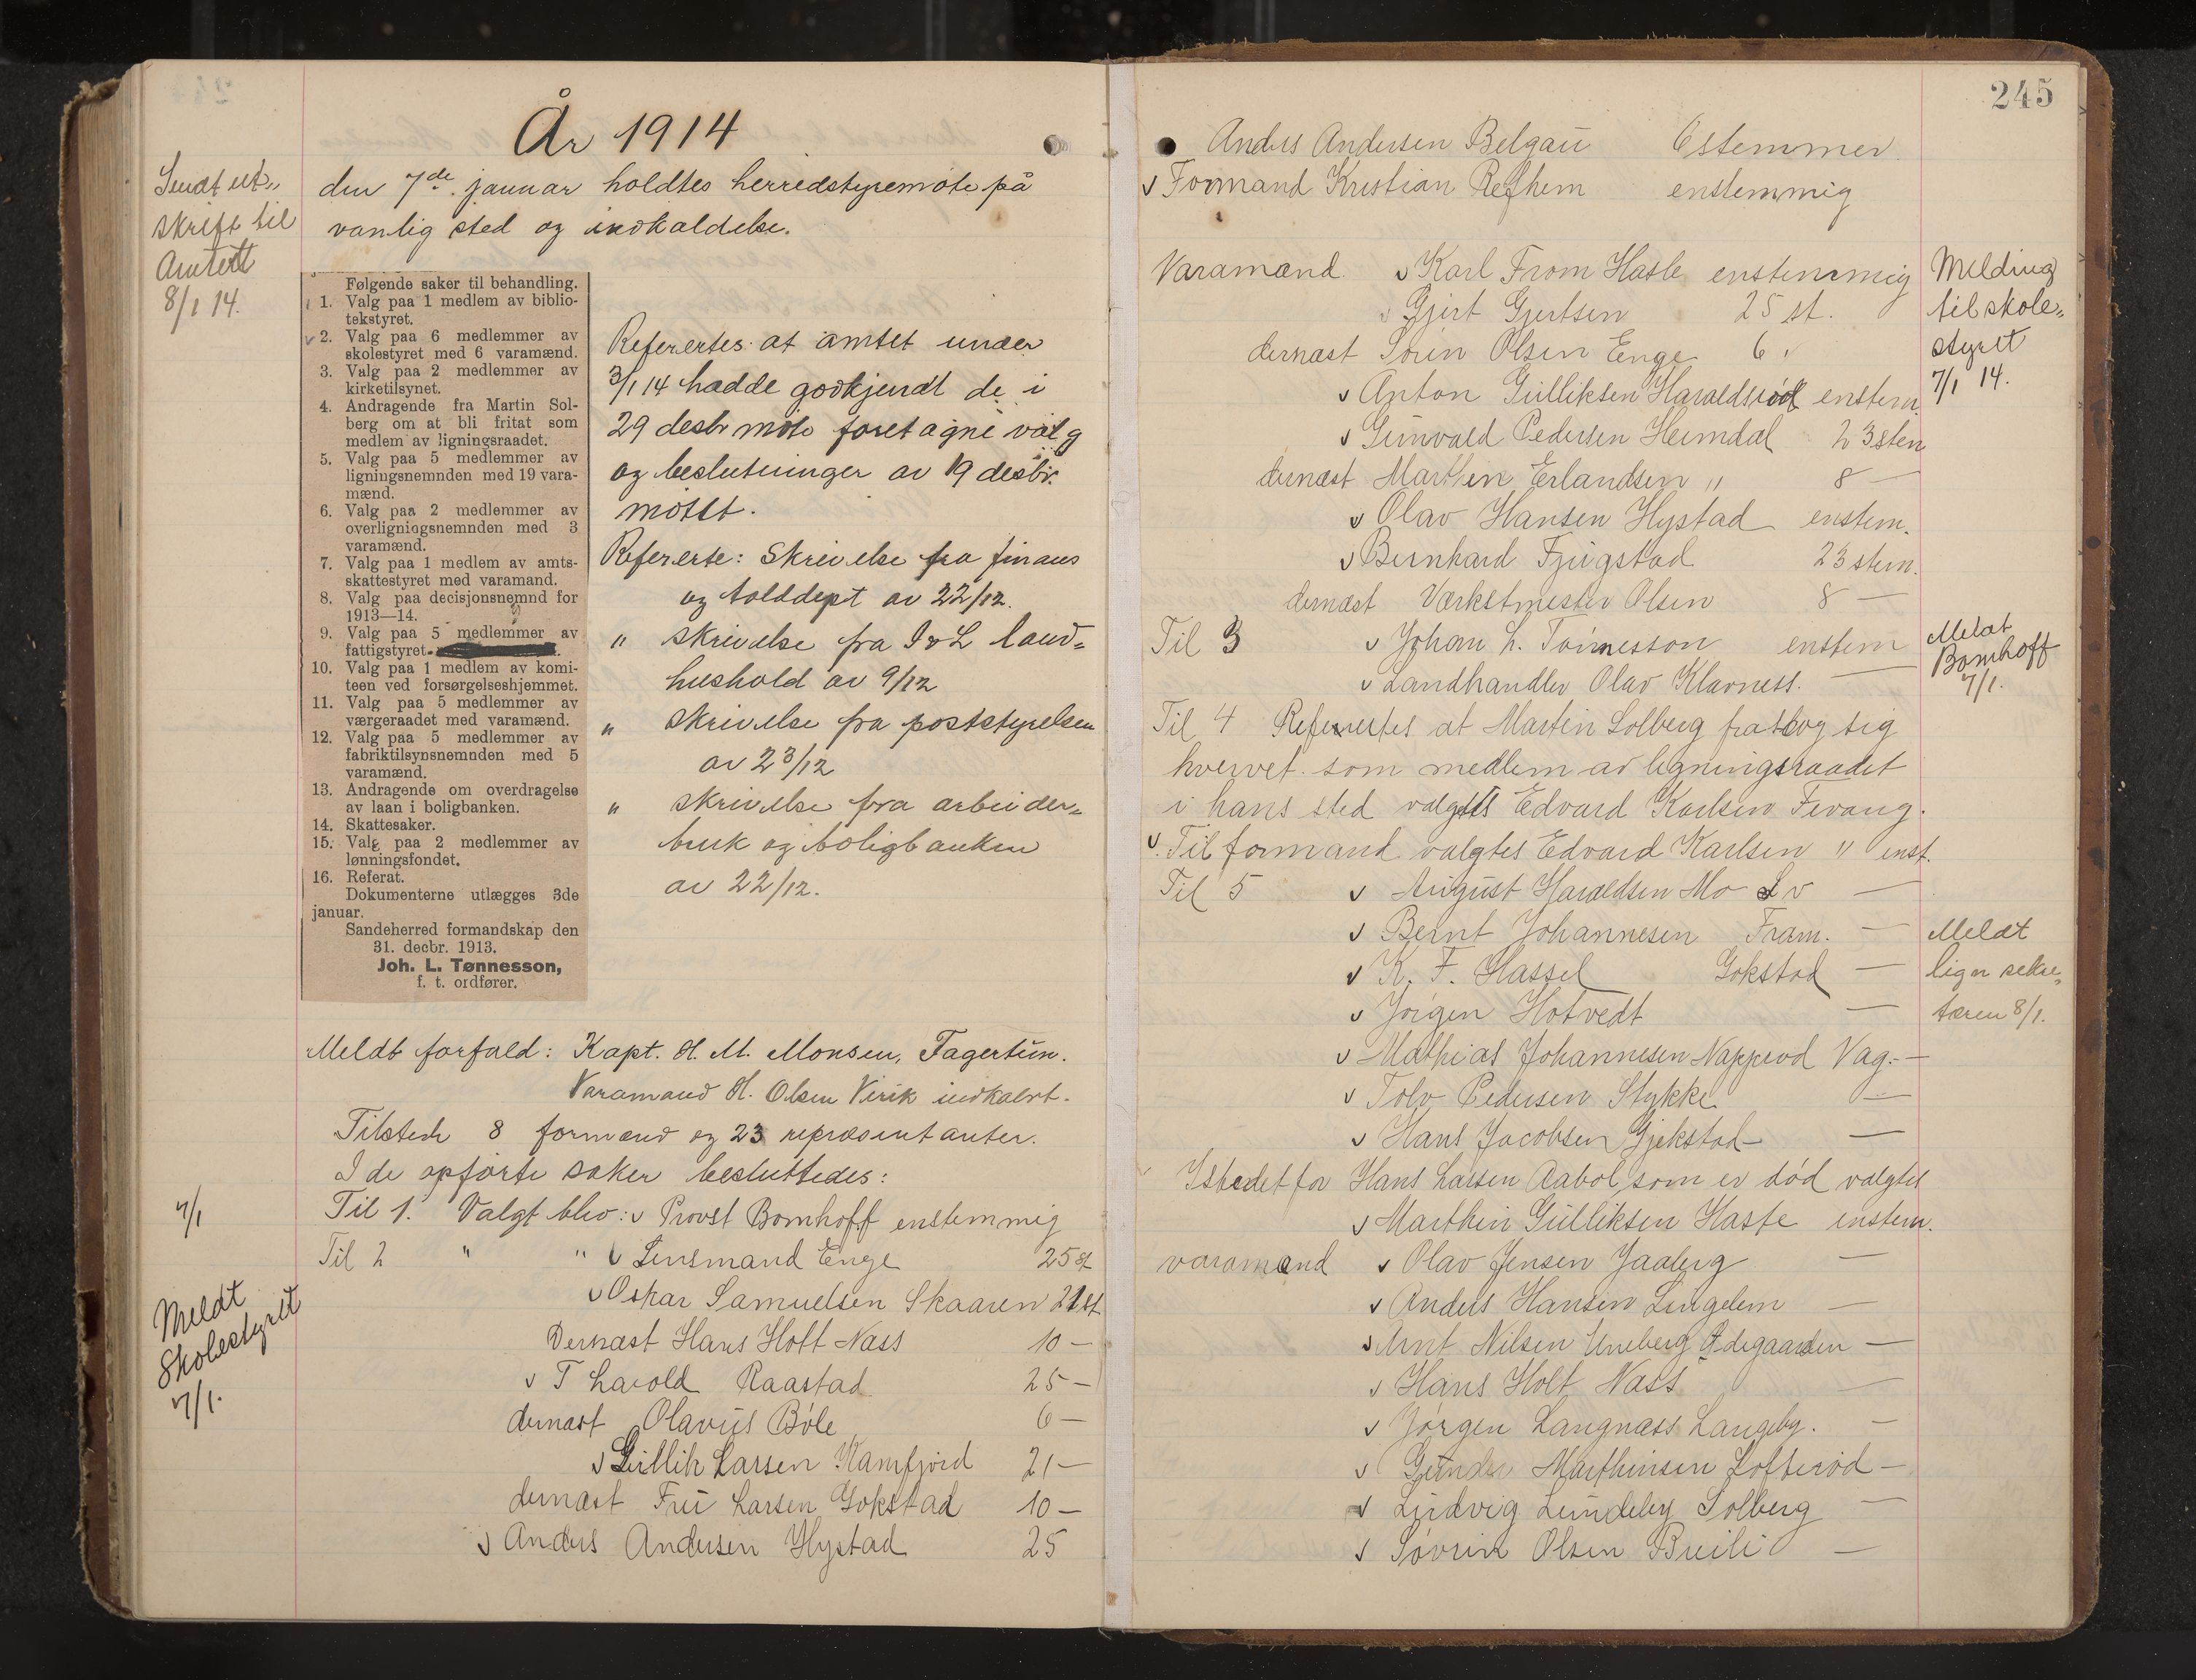 År 1914
den 7de januar holdtes herredstyremøte på
vanlig sted og indkaldelse.
Sendt ut-
skrift til
Amtet
8/1 14.
Følgende saker til behandling.
1. Valg paa 1 medlem av biblio-
tekstyret.
2. Valg paa 6 medlemmer av
skolestyret med 6 varamænd.
3. Valg paa 2 medlemmer av
kirketilsynet.
4. Andragende fra Martin Sol-
berg om at bli fritat som
medlem av ligningsraadet.
5. Valg paa 5 medlemmer av
ligningsnemnden med 19 vara-
mænd.
6. Valg paa 2 medlemmer av
overligningsnemnden med 3
varamænd.
7. Valg paa 1 medlem av amts-
skattestyret med varamand.
8. Valg paa decisjonsnemnd for
1913—14.
9. Valg paa 5 medlemmer av
fattigstyret.
10. Valg paa 1 medlem av komi-
teen ved forsørgelseshjemmet.
11. Valg paa 5 medlemmer av
værgeraadet med varamænd.
12. Valg paa 5 medlemmer av
fabriktilsynsnemnden med 5
varamænd.
13. Andragende om overdragelse
av laan i boligbanken.
14. Skattesaker.
15. Valg paa 2 medlemmer av
lønningsfondet.
16. Referat.
Dokumenterne utlægges 3de
januar.
Sandeherred formandskap den
31. decbr. 1913.
Joh. L. Tønnesson,
f. t. ordfører.
Referertes at amtet under
3/1 14 hadde godkjendt de i
29 desbr møte foretagne valg
og beslutninger av 19 desbr.
møtet.
Refererte: Skrivelse fra finans
og tolddept av 22/12.
" skrivelse fra I & L land-
hushold av 9/12
" skrivelse fra poststyrelsen
av 23/12
" skrivelse fra arbeider-
bruk og boligbanken
av 22/12.
Meldt forfald: Kapt. H. M. Monsen, Fagertun.
Varamand H. Olsen Virik indkaldt.
Tilstede 8 formænd og 23 repræsentanter.
I de opførte saker besluttedes:
7/1
Til 1. Valgt blev: v Provst Bomhoff enstemmig
Til 2 " " v Lensmand Enge 25 st
v Oskar Samuelsen Skaaren 21 st
Dernæst Hans Holt Næss 10 —
v Tharold Raastad 25 —
dernæst Olavus Bøle 6 —
v Gullik Larsen Kamfjord 21 —
dernæst Fru Larsen Gokstad 10 —
v Anders Andersen Hystad 25
Meldt
Skolestyret
7/1.
245
Anders Andersen Belgau 6 stemmer
v Formand Kristian Refhem enstemmig
Varamænd v Karl From Hasle enstemmig
v Gjert Gjertsen 25 st.
dernæst Søren Olsen Enge 6 "
v Anton Gulliksen Haraldsrød enstem.
v Gunvald Pedersen Heimdal 23 stem
dernæst Marthen Erlandsen " 8 —
v Olav Hansen Hystad enstem.
v Bernhard Fjugstad 23 stem.
dernæst Værkstmester Olsen 8 —
Melding
til skole-
styret
7/1 14.
Til 3 v Johan L. Tønnesson enstem
v Landhandler Olav Klavness. —
Meldt
Bomhoff
7/1.
Til 4 Refererertes at Martin Solberg fratog sig
hvervet som medlem av ligningsraadet
i hans sted valgtes Edvard Karlsen Fevang.
v. Til formand valgtes Edvard Karlsen " enst.
Til 5 v August Haraldsen Mo Sv —
v Bernt Johannesen Fram. —
v K. F. Hassel Gokstad —
v Jørgen Hotvedt —
v Mathias Johannesen Napperød Vag. —
v Tolv Pedersen Stykke —
v Hans Jacobsen Gjekstad —
Meldt
lign sekre-
tæren 8/1.
Istedetfor Hans Larsen Aabol, som er død valgtes
v Marthin Gulliksen Haste enstem.
varamænd v Olav Jensen Jaaberg —
v Anders Hansen Lingelem —
v Arnt Nilsen Uneberg Ødegaarden —
v Hans Holt Næss —
v Jørgen Langnæss Langeby. —
v Gunder Marthinsen Lofterød —
v Ludvig Lundeby Solberg —
v Søvrin Olsen Breili —